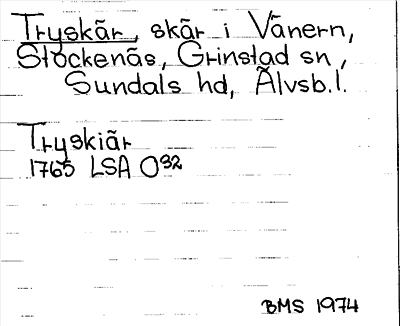 Tryskär, skär i Vänern,
Stockenäs, Grinstad sn,
Sundals hd, Älvsb.l.
Tryskiär
1765 LSA O92
BMS 1974